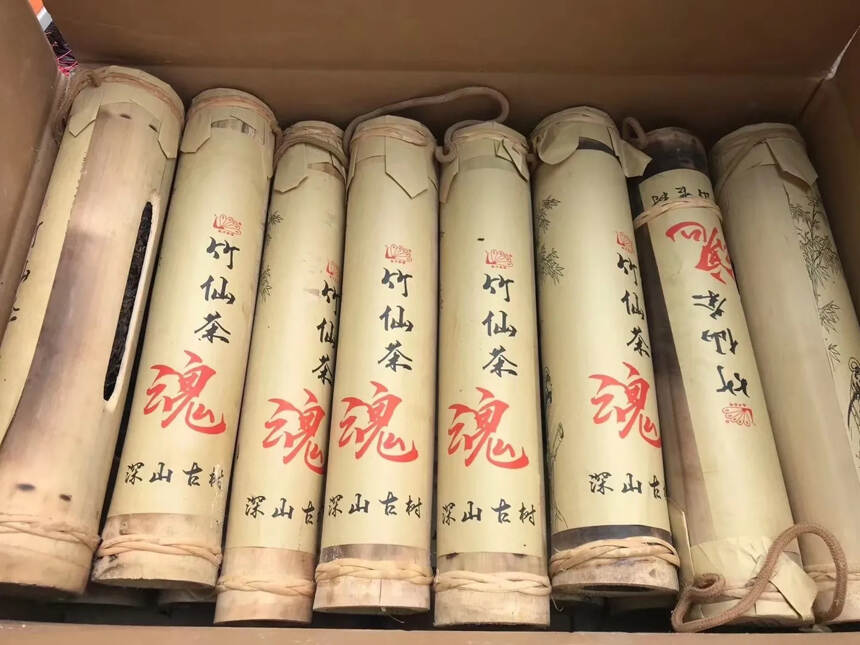 竹仙
竹仙茶
魂
深山古树
竹仙茶
魂
深山古树
竹仙茶
魂
深山古树
竹仙茶
魂
深山古树
竹仙茶
魂
深山古树
竹仙茶
魂